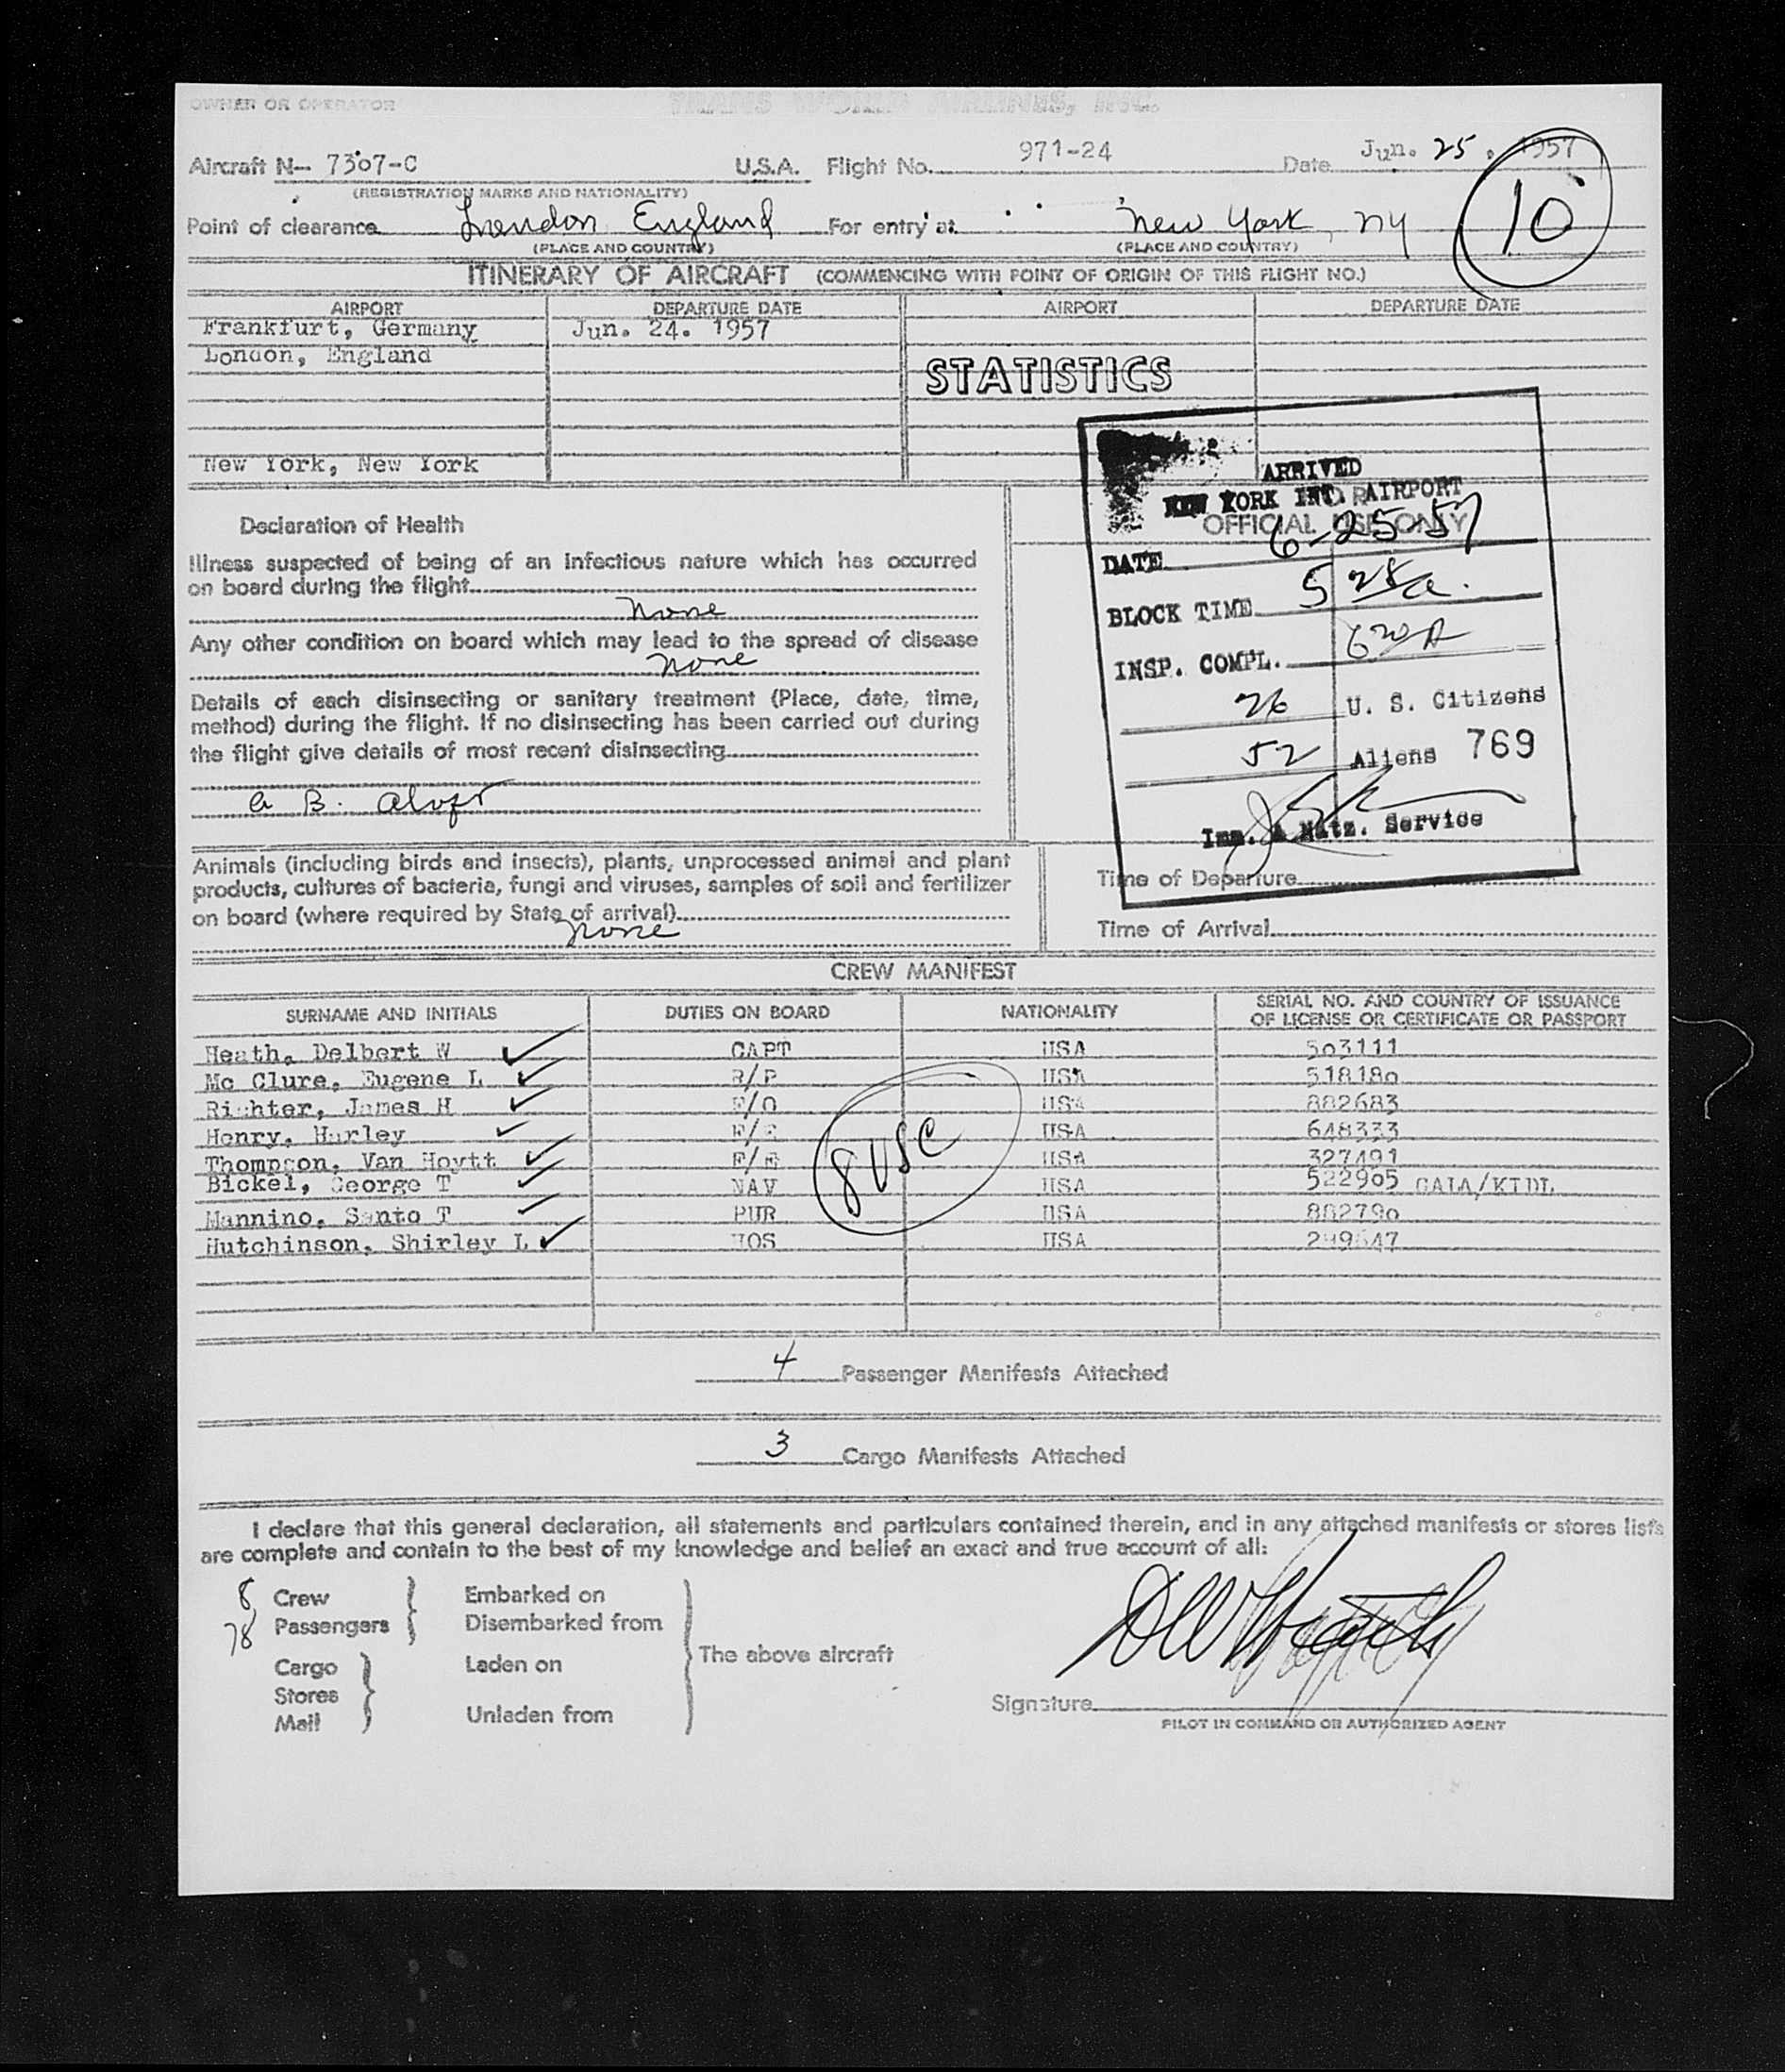 OWNER OR OPERATOR TRANS WORLD AIRLINES, INC.
Aircraft N— 7307-C U.S.A. Flight No. 971-24 Date Jun. 25. 1957
(REGISTRATION MARKS AND NATIONALITY)
10
Point of clearance London England For entry at New York, NY
(PLACE AND COUNTRY) (PLACE AND COUNTRY)
ITINERARY OF AIRCRAFT (COMMENCING WITH POINT OF ORIGIN OF THIS FLIGHT NO.)
AIRPORT DEPARTURE DATE AIRPORT DEPARTURE DATE
Frankfurt, Germany Jun. 24. 1957
London, England
STATISTICS
New York, New York
ARRIVED
NEW YORK INT. AIRPORT
OFFICIAL USE ONLY
DATE 6-25-57
BLOCK TIME 5 28a.
INSP. COMPL. 6 30 A
26 U. S. Citizens
52 Aliens 769
Imm. & Natz. Service
Declaration of Health
Illness suspected of being of an infectious nature which has occurred
on board during the flight
None
Any other condition on board which may lead to the spread of disease
None
Details of each disinsecting or sanitary treatment (Place, date, time,
method) during the flight. If no disinsecting has been carried out during
the flight give details of most recent disinsecting
B. Aloft
Animals (including birds and insects), plants, unprocessed animal and plant
products, cultures of bacteria, fungi and viruses, samples of soil and fertilizer
on board (where required by State of arrival)
None
Time of Departure
Time of Arrival
CREW MANIFEST
SURNAME AND INITIALS DUTIES ON BOARD NATIONALITY SERIAL NO. AND COUNTRY OF ISSUANCE
OF LICENSE OR CERTIFICATE OR PASSPORT
Heath, Delbert W CAPT USA 503111
Mc Clure, Eugene L R/P USA 518180
Richter, James H F/O USA 882683
Henry, Harley F/E USA 648333
Thompson, Van Hoytt F/E USA 327491
Bickel, George T NAV USA 522905 CALA/KIDL
Mannino, Santo T PUR USA 882790
Hutchinson, Shirley L HOS USA
8 USC
4 Passenger Manifests Attached
3 Cargo Manifests Attached
I declare that this general declaration, all statements and particulars contained therein, and in any attached manifests or stores lists
are complete and contain to the best of my knowledge and belief an exact and true account of all:
8 Crew Embarked on
78 Passengers Disembarked from
The above aircraft
Cargo Laden on
Stores
Mail Unladen from
DW Heath
Signature
PILOT IN COMMAND OR AUTHORIZED AGENT